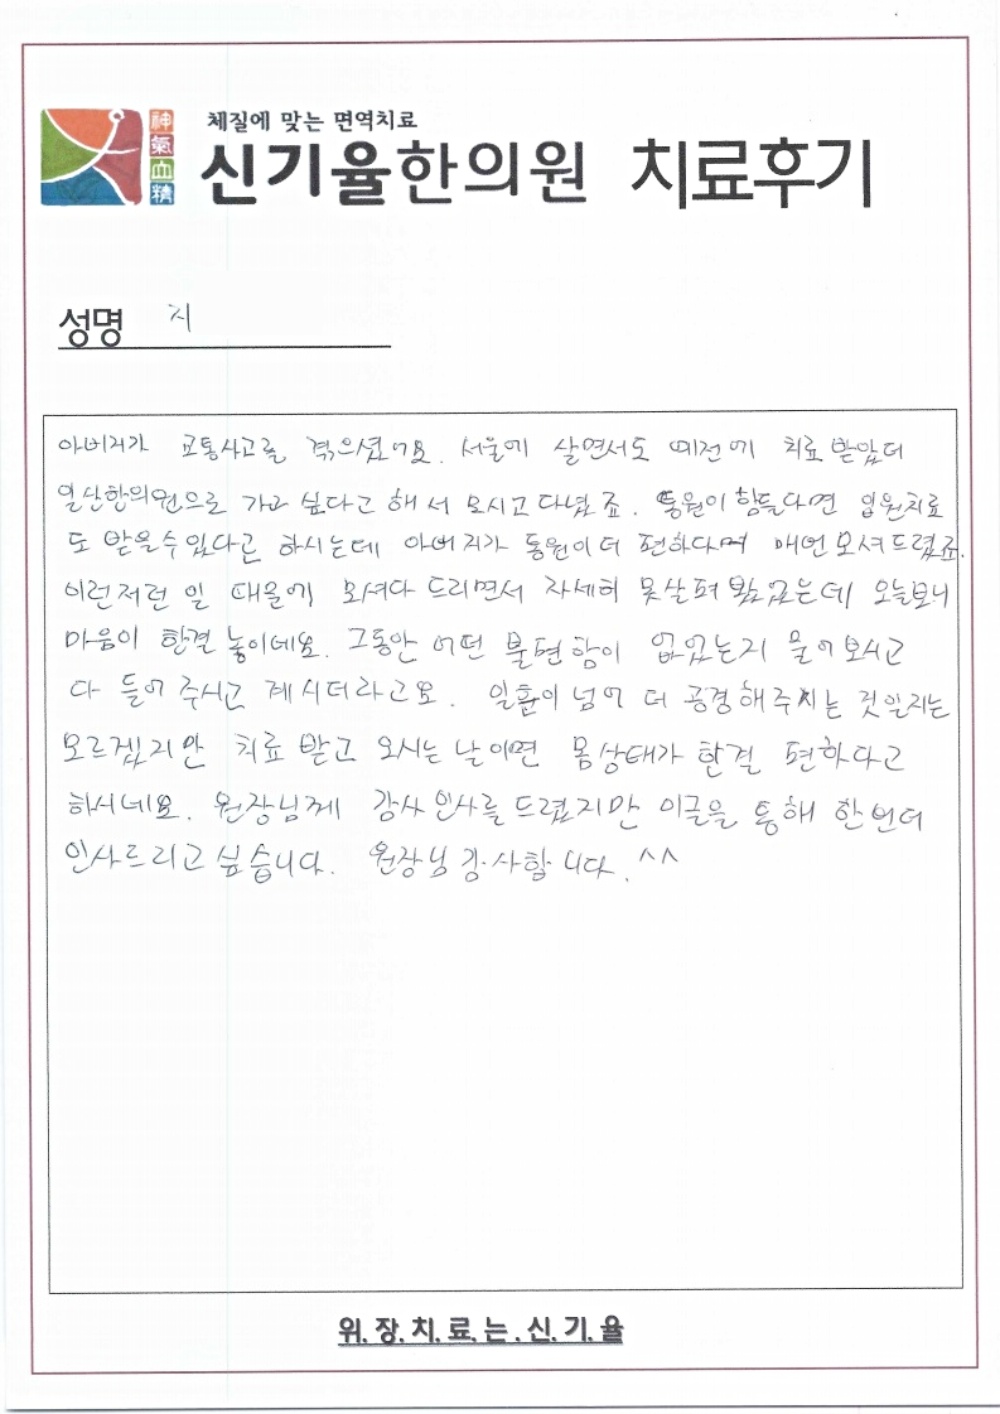 체질에 맞는 면역치료
神氣血精
신기율한의원 치료후기
성명 지
아버지가 교통사고를 겪으셨어요. 서울에 살면서도 예전에 치료받았더
일산한의원으로 가고 싶다고 해서 모시고 다녔죠. 통원이 힘들다면 입원치료
도 받을수있다고 하시는데 아버지가 통원이 더 편하다며 매번 모셔드렸죠.
이런저런 일 때문에 모셔다 드리면서 자세히 못살펴 봤었는데 오늘보니
마음이 한결 놓이네요. 그동안 어떤 불편함이 없었는지 물어보시고
다 들어 주시고 계시더라고요. 일흔이 넘어 더 공경해주시는 것일지는
모르겠지만 치료 받고 오시는 날이면 몸상태가 한결 편하다고
하시네요. 원장님께 감사인사를 드렸지만 이글을 통해 한번더
인사드리고 싶습니다. 원장님 감사합니다. ^^
위.장.치.료.는.신.기.율